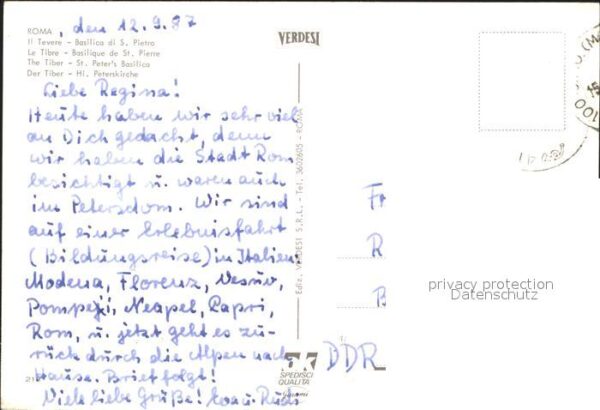 ROMA, den 12.9.87
Il Tevere - Basilica di S. Pietro
Le Tibre - Basilique de St. Pierre
The Tiber - St. Peter's Basilica
Der Tiber - Hl. Peterskirche
VERDESI
Liebe Regina!
Heute haben wir sehr viel
an Dich gedacht, denn
wir haben die Stadt Rom
besichtigt u. waren auch
im Petersdom. Wir sind
auf einer Erlebnisfahrt
(Bildungsreise) in Italien:
Modena, Florenz, Vesuv,
Pompeji, Neapel, Capri,
Rom, u. jetzt geht es zu-
rück durch die Alpen nach
Hause. Brief folgt!
Viele liebe Grüße! Eva u. Rudi
Ediz. VERDESI S.R.L. - Tel. 3602605 - ROMA
Fr
R
B
DDR
privacy protection
Datenschutz
SPEDISCI
QUALITÀ